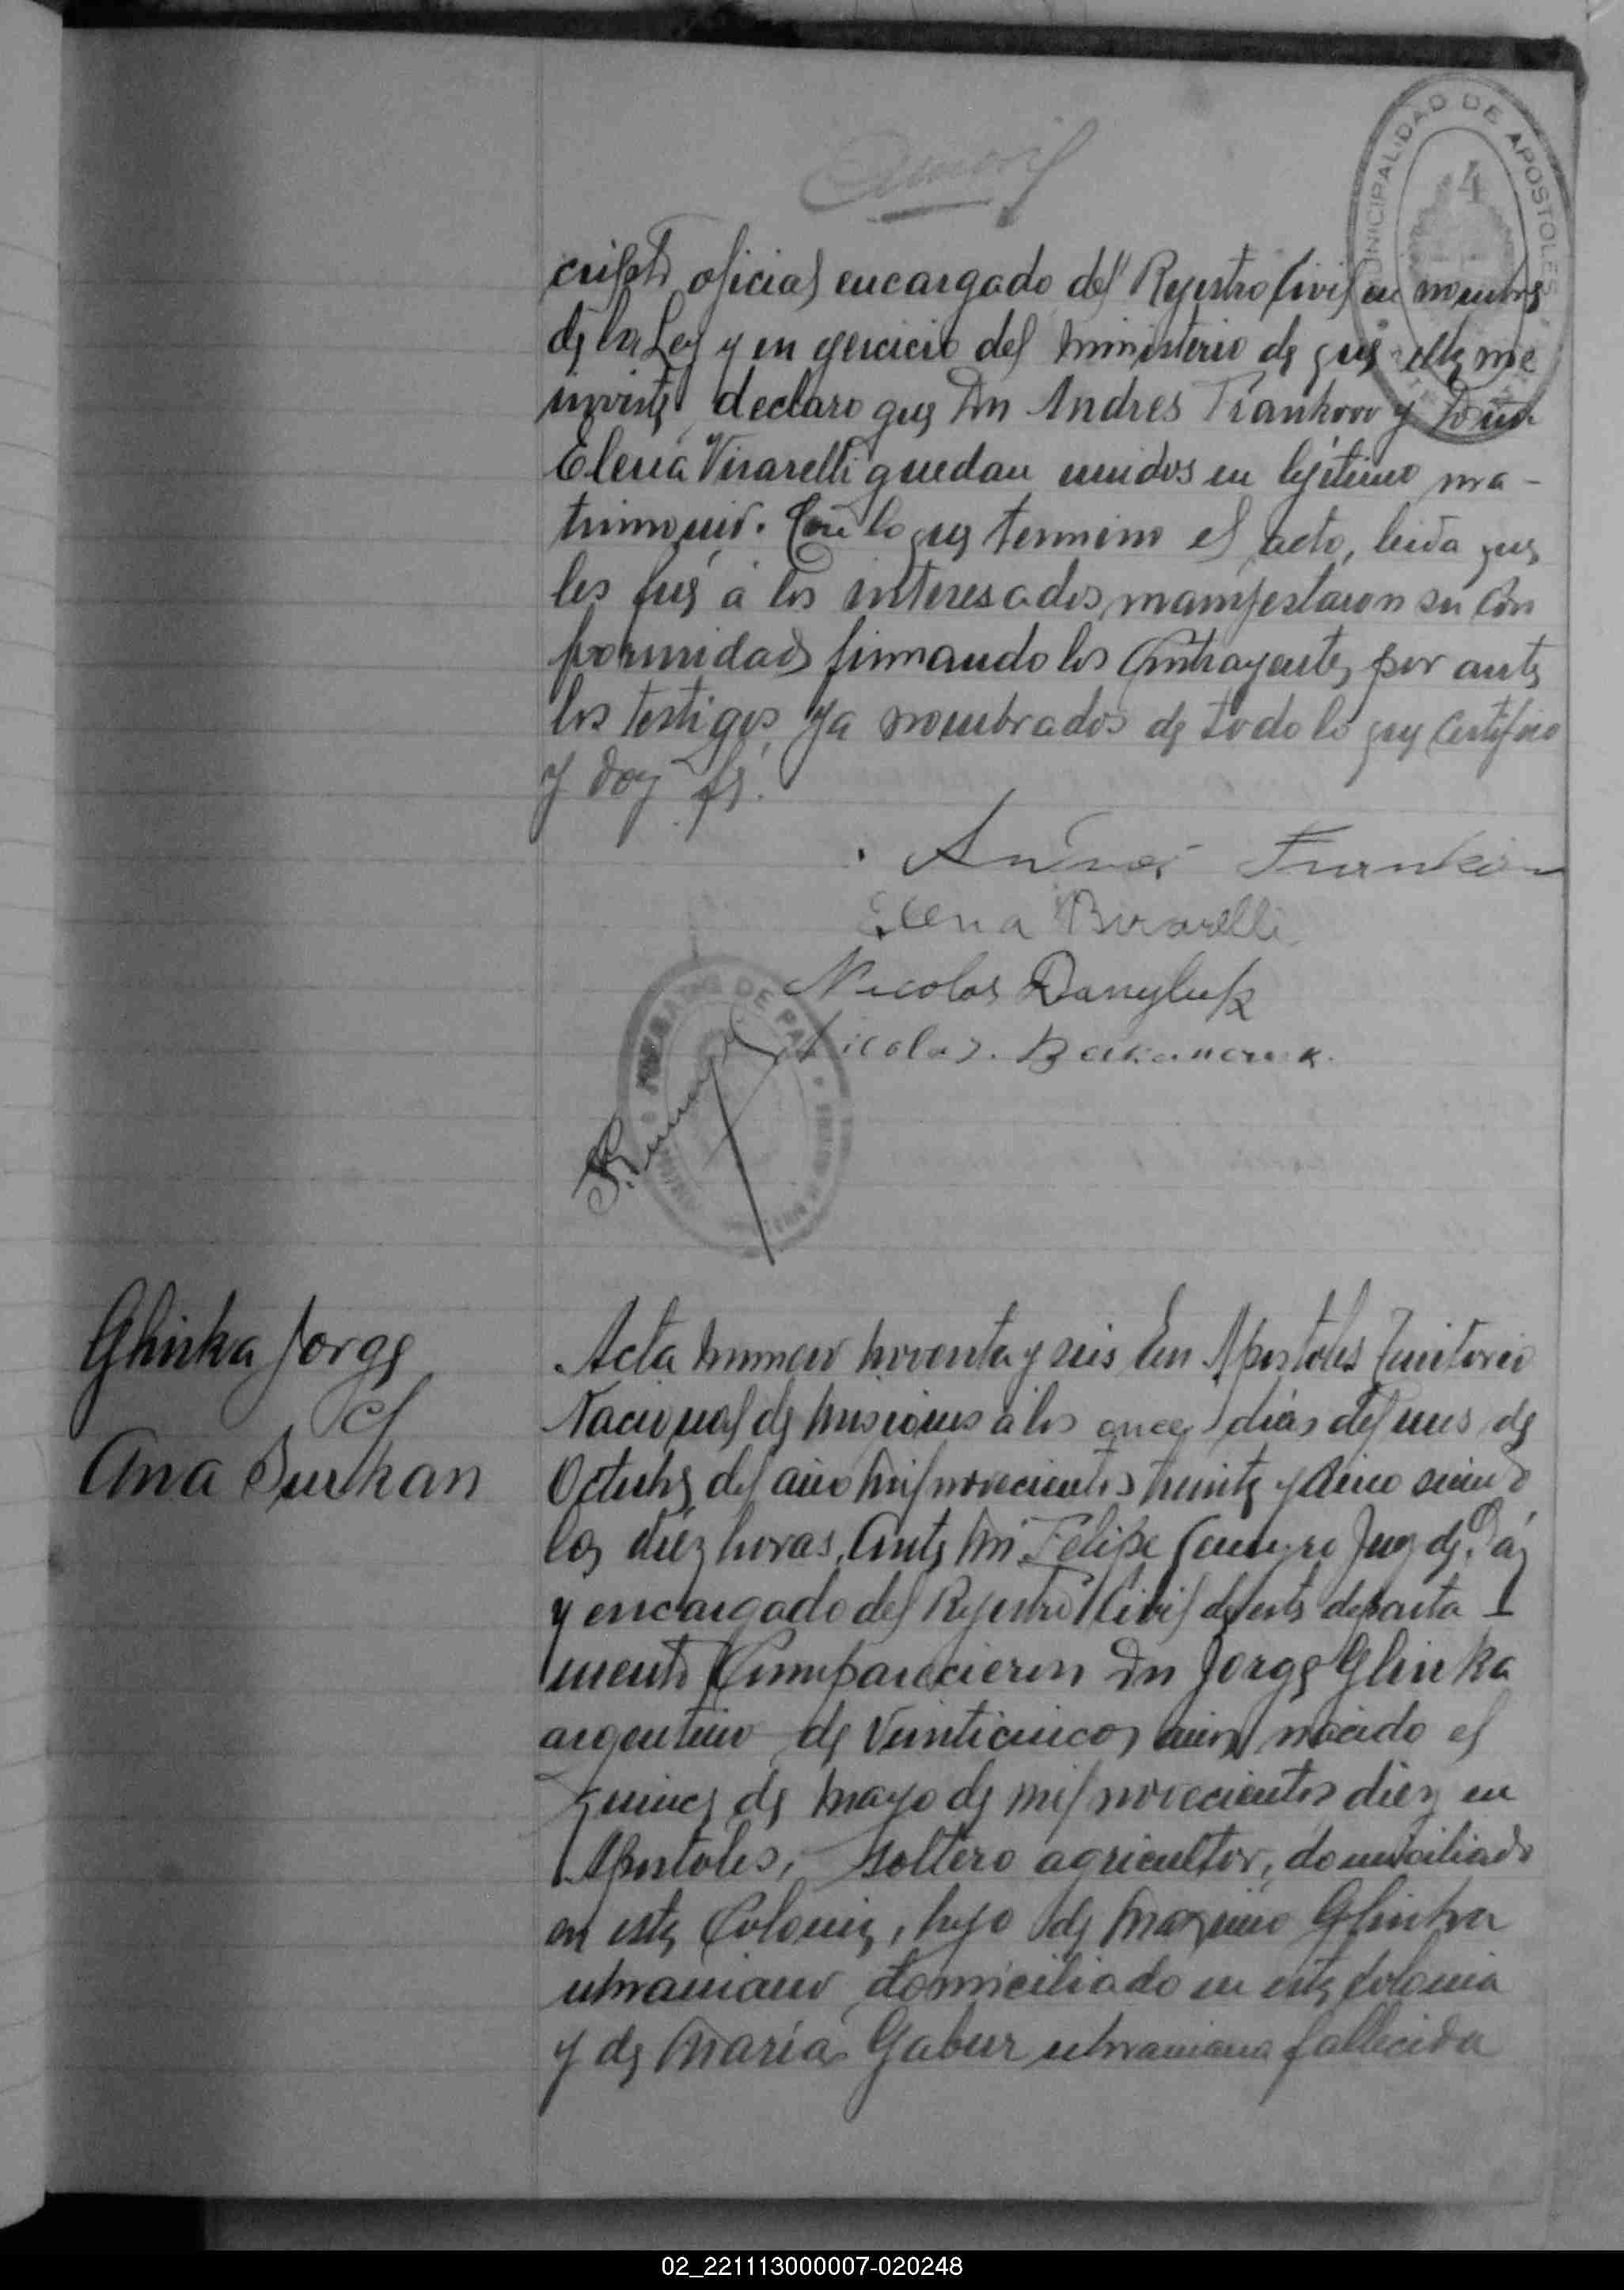 MUNICIPALIDAD DE APOSTOLES
cripto oficial encargado del Registro Civil en nombre
de la Ley y en ejercicio del ministerio de que ella me
inviste, declaro que Dn Andres Frankow y Doña
Elena Virarelli quedan unidos en lejitimo ma-
trimonio. Con lo que termino el acto, leida que
les fué á los interesados, manifestaron su con
formidad firmando los contrayentes por ante
los testigos ya nombrados de todo lo que certifico
y doy fé.
Elena Birarelli
Nicolas Danyluk
Nicolas
JUZGADO DE PAZ
Glinka Jorge
c/
Ana Burkan
Acta numero noventa y seis En Apostoles Territorio
Nacional de Misiones a los once dias del mes de
Octubre del año mil novecientos treinta y cinco siendo
las diéz horas, Ante Mi Felipe Juez de Páz
y encargado del Registro Civil de este departa-
mento Comparecieron Dn Jorge Glinka
argentino de Veinticinco años nacido el
quince de Mayo de mil novecientos diez en
Apostoles, soltero agricultor, domiciliado
en esta Colonia, hijo de Maximo Glinka
ukraniano domiciliado en esta Colonia
y de María Gabur ukraniana fallecida
02_221113000007-020248